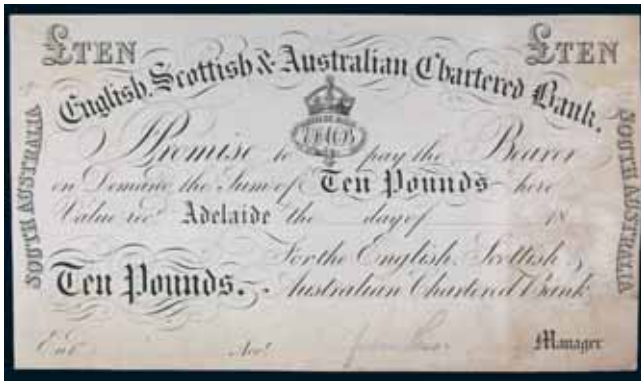 £TEN £TEN
English, Scottish & Australian Chartered Bank.
SOUTH AUSTRALIA
SOUTH AUSTRALIA
I Promise to pay the Bearer
on Demand the Sum of Ten Pounds here
Value recd Adelaide the day of 18
For the English, Scottish &
Ten Pounds. Australian Chartered Bank
Entd Acct Manager